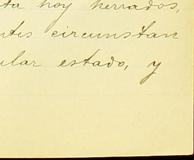 ta hoy herrados,
ntes circunstan
ular estado, y